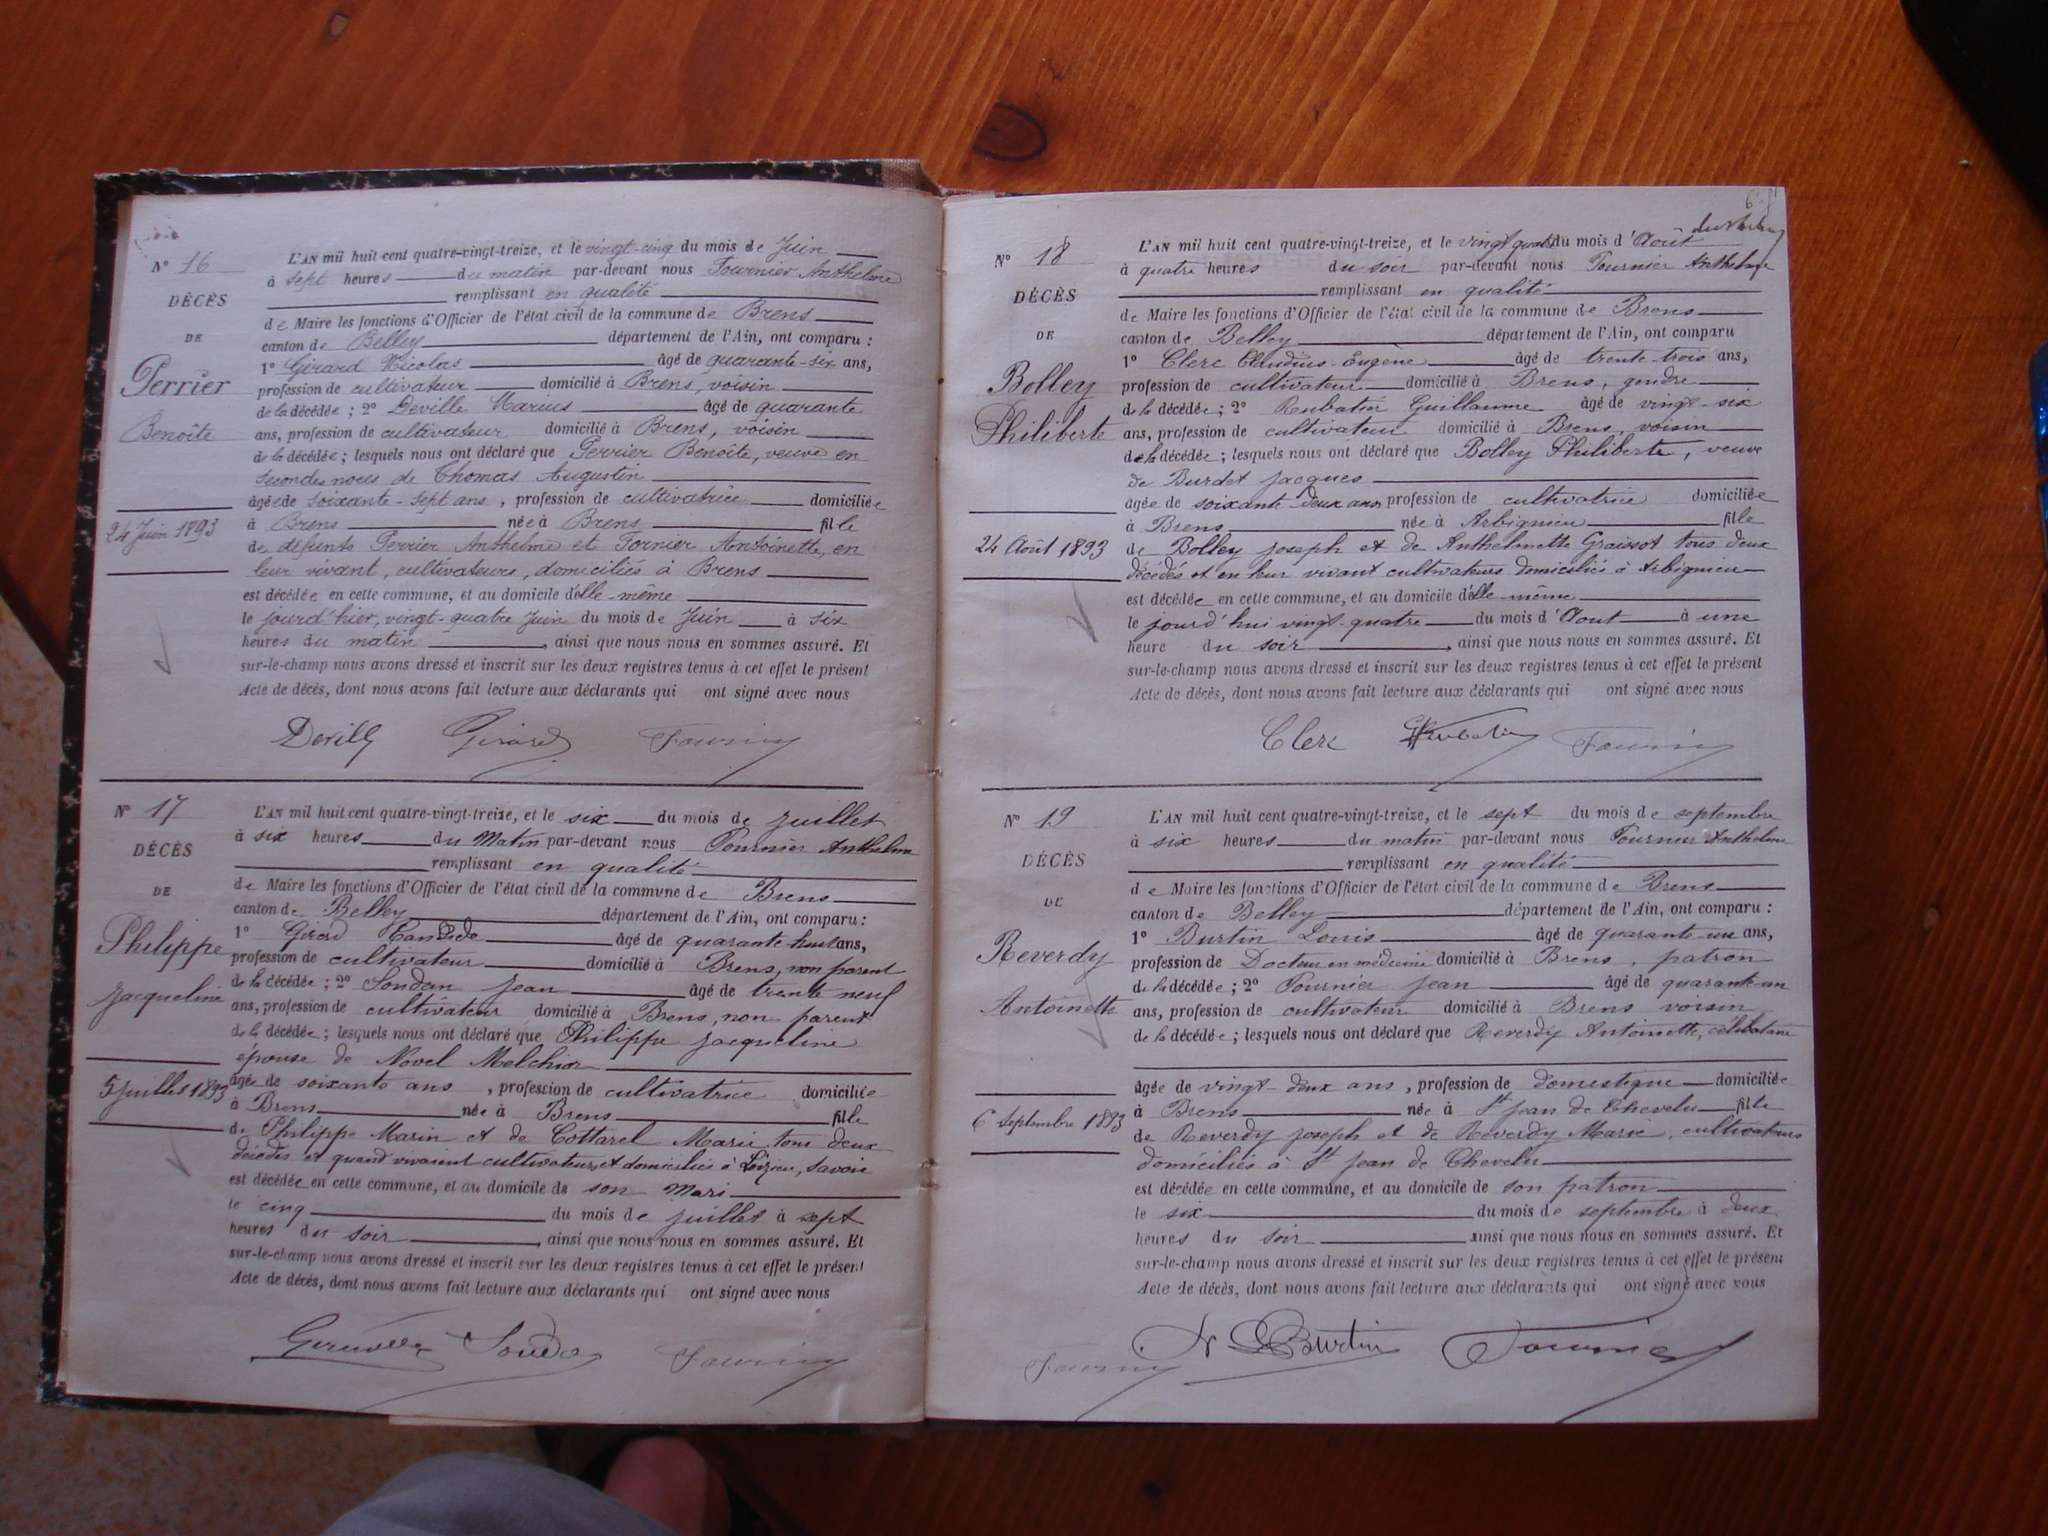 N° 16
DÉCÈS
DE
Perrier
Benoîte
24 Juin 1893
L'AN mil huit cent quatre-vingt-treize, et le vingt-cinq du mois de Juin
à sept heures du matin par-devant nous Fournier Anthelme
remplissant en qualité
de Maire les fonctions d'Officier de l'état civil de la commune de Brens
canton de Belley département de l'Ain, ont comparu :
1° Girard Nicolas âgé de quarante-six ans,
profession de cultivateur domicilié à Brens, voisin
de la décédée ; 2° Deville Marius âgé de quarante
ans, profession de cultivateur domicilié à Brens, voisin
de la décédée ; lesquels nous ont déclaré que Perrier Benoîte, veuve en
secondes noces de Thomas Augustin
âgée de soixante-sept ans, profession de cultivatrice domiciliée
à Brens née à Brens fille
de défunts Perrier Anthelme et Fornier Antoinette, en
leur vivant, cultivateurs, domiciliés à Brens
est décédée en cette commune, et au domicile d'elle-même
le jourd'hier, vingt-quatre Juin du mois de Juin à six
heures du matin, ainsi que nous nous en sommes assuré. Et
sur-le-champ nous avons dressé et inscrit sur les deux registres tenus à cet effet le présent
Acte de décès, dont nous avons fait lecture aux déclarants qui ont signé avec nous
Girard
N° 17
DÉCÈS
DE
Philippe
Jacqueline
5 juillet 1893
L'AN mil huit cent quatre-vingt-treize, et le six du mois de juillet
à six heures du Matin par-devant nous Fournier Anthelme
remplissant en qualité
de Maire les fonctions d'Officier de l'état civil de la commune de Brens
canton de Belley département de l'Ain, ont comparu :
1° âgé de quarante-huit ans,
profession de cultivateur domicilié à Brens, non parent
de la décédée ; 2° Soudan Jean âgé de trente neuf
ans, profession de cultivateur domicilié à Brens, non parent
de la décédée ; lesquels nous ont déclaré que Philippe Jacqueline
épouse de Novel Melchior
âgée de soixante ans, profession de cultivatrice domiciliée
à Brens née à Brens fille
de Philippe Marin et de Cottarel Marie tous deux
décédés et quand vivaient cultivateurs et domiciliés à Savoie
est décédée en cette commune, et au domicile de son Mari
le cinq du mois de juillet à sept
heures du soir, ainsi que nous nous en sommes assuré. Et
sur-le-champ nous avons dressé et inscrit sur les deux registres tenus à cet effet le présent
Acte de décès, dont nous avons fait lecture aux déclarants qui ont signé avec nous
N° 18
DÉCÈS
DE
Bolley
Philiberte
24 Août 1893
L'AN mil huit cent quatre-vingt-treize, et le vingt quatre du mois d'Août
à quatre heures du soir par-devant nous Fournier Anthelme
remplissant en qualité
de Maire les fonctions d'Officier de l'état civil de la commune de Brens
canton de Belley département de l'Ain, ont comparu
1° Clerc Claudius-Eugène âgé de trente-trois ans,
profession de cultivateur domicilié à Brens, gendre
de la décédée ; 2° Rubatin Guillaume âgé de vingt-six
ans, profession de cultivateur domicilié à Brens, voisin
de la décédée ; lesquels nous ont déclaré que Bolley Philiberte, veuve
de Burdet Jacques
âgée de soixante deux ans, profession de cultivatrice domiciliée
à Brens née à Arbignieu fille
de Bolley Joseph et de Anthelmette Graissot tous deux
décédés et en leur vivant cultivateurs domiciliés à Arbignieu
est décédée en cette commune, et au domicile d'elle-même
le jourd'hui vingt-quatre du mois d'Aout à une
heure du soir, ainsi que nous nous en sommes assuré. Et
sur-le-champ nous avons dressé et inscrit sur les deux registres tenus à cet effet le présent
Acte de décès, dont nous avons fait lecture aux déclarants qui ont signé avec nous
Clerc
N° 19
DÉCÈS
DE
Reverdy
Antoinette
6 Septembre 1893
L'AN mil huit cent quatre-vingt-treize, et le sept du mois de septembre
à six heures du matin par-devant nous Fournier Anthelme
remplissant en qualité
de Maire les fonctions d'Officier de l'état civil de la commune de Brens
canton de Belley département de l'Ain, ont comparu :
1° Burtin Louis âgé de quarante-un ans,
profession de Docteur en médecine domicilié à Brens, patron
de la décédée ; 2° Fournier Jean âgé de quarante-un
ans, profession de cultivateur domicilié à Brens voisin
de la décédée ; lesquels nous ont déclaré que Reverdy Antoinette, célibataire
âgée de vingt-deux ans, profession de domestique domiciliée
à Brens née à St Jean de Chevelu fille
de Reverdy Joseph et de Reverdy Marie, cultivateurs
domiciliés à St Jean de Chevelu
est décédée en cette commune, et au domicile de son patron
le six du mois de septembre à deux
heures du soir ainsi que nous nous en sommes assuré. Et
sur-le-champ nous avons dressé et inscrit sur les deux registres tenus à cet effet le présent
Acte de décès, dont nous avons fait lecture aux déclarants qui ont signé avec nous
Burtin